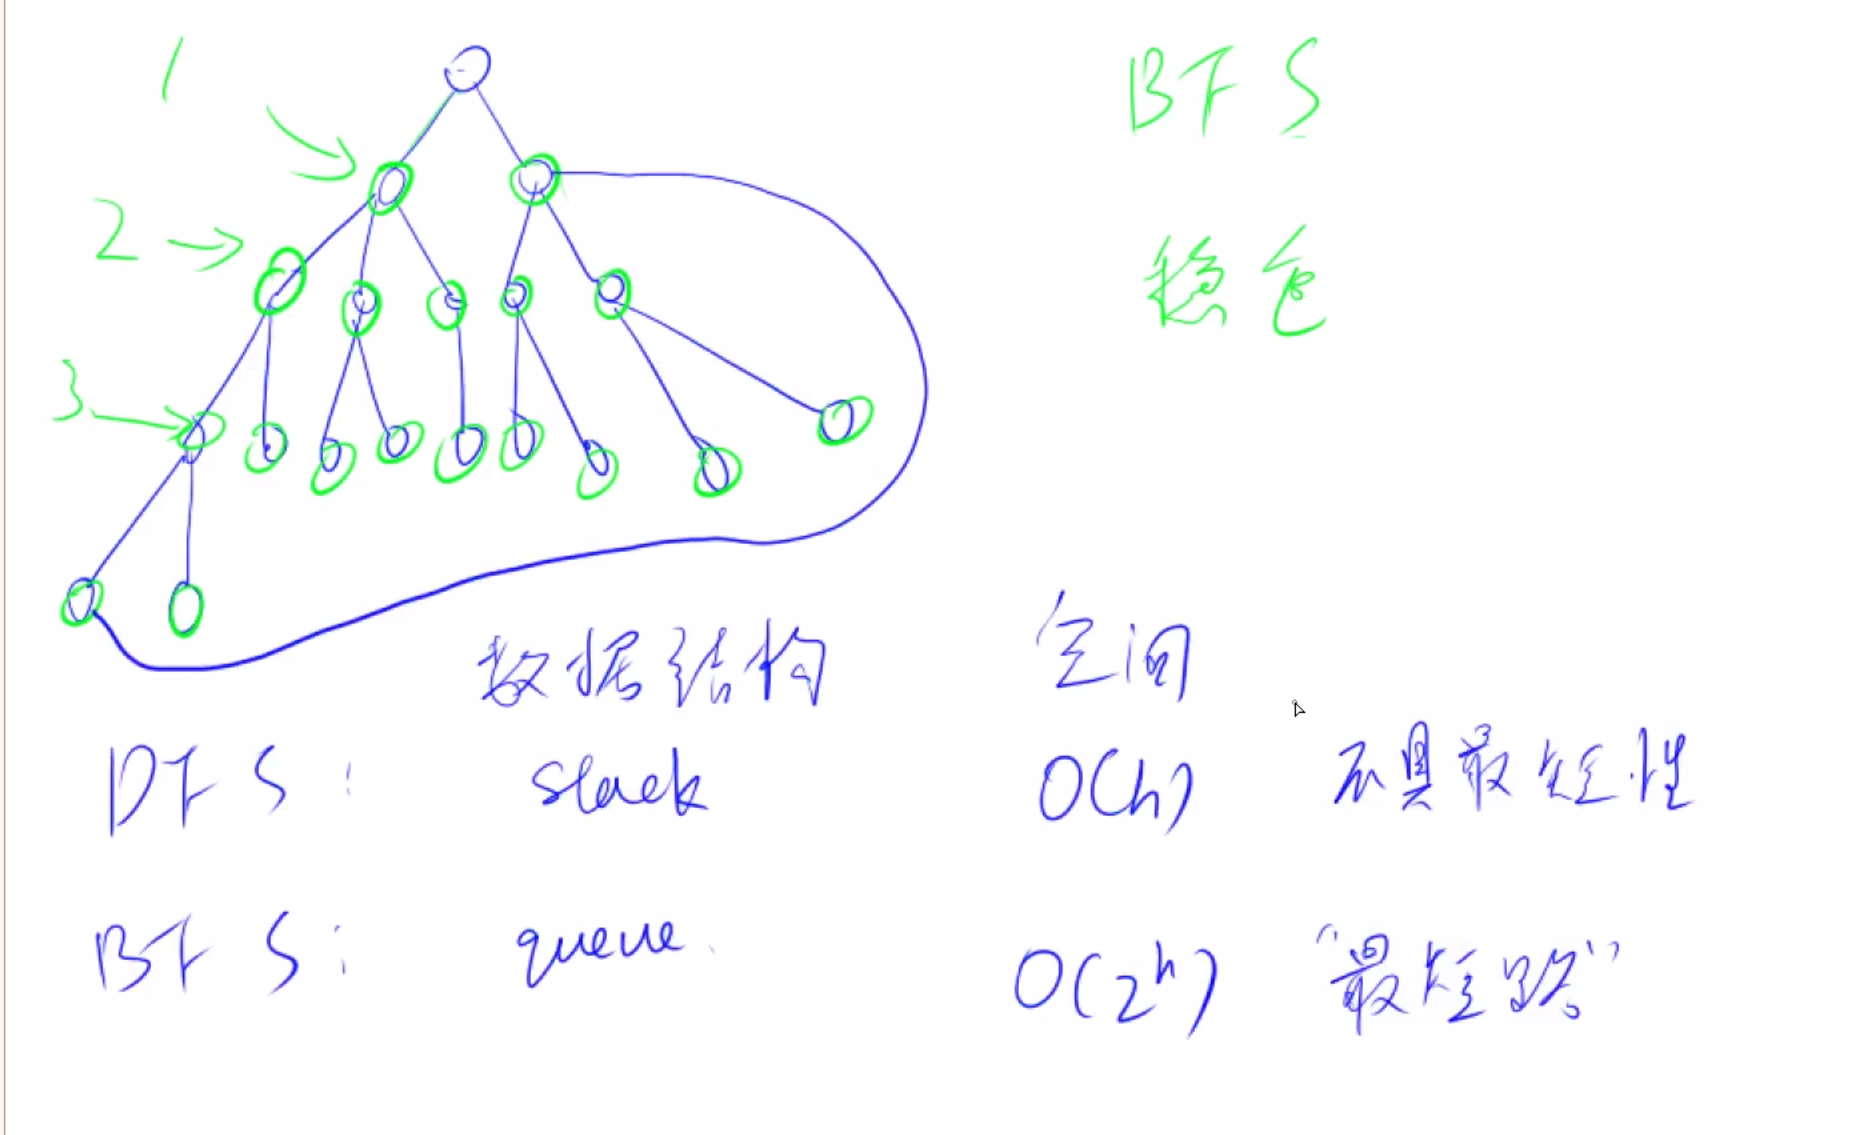 1
BFS
2
稳
3
数据结构 空间
DFS: stack O(h) 不具最短性
BFS: queue. O(2^h) “最短路”